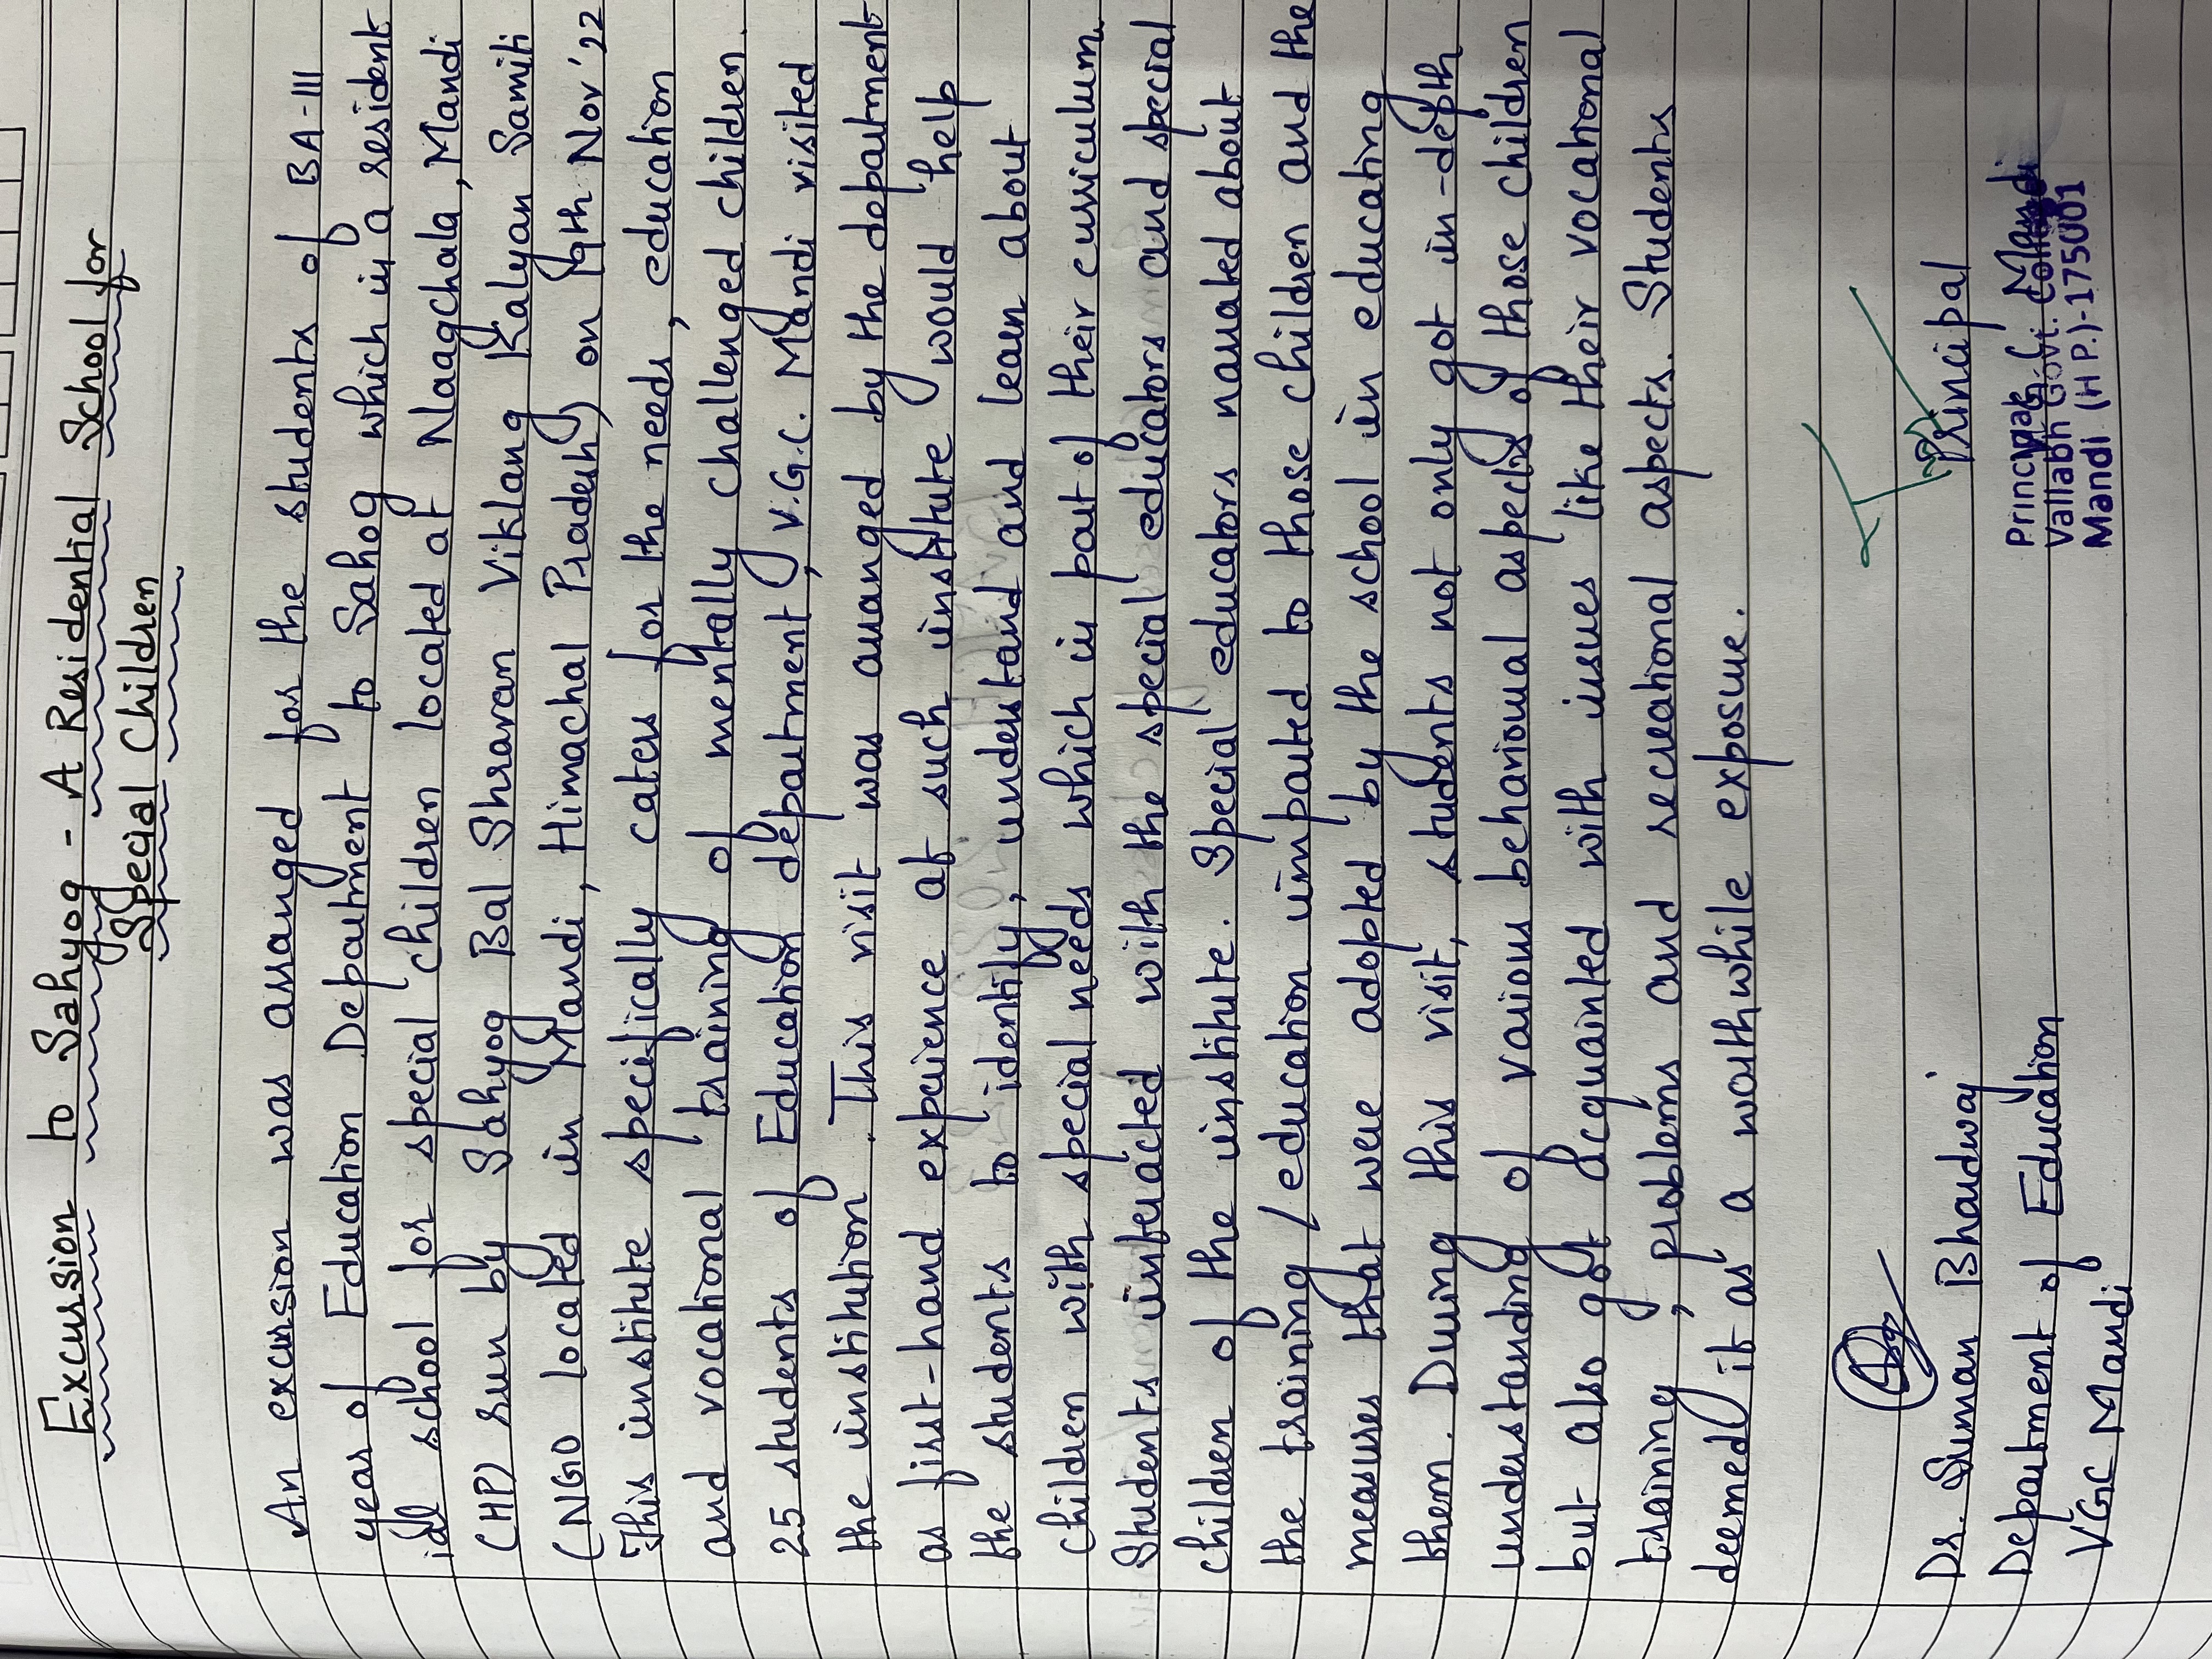 Excursion to Sahyog - A Residential School for
Special Children
An excursion was arranged for the students of BA-III
year of Education Department to Sahog which is a resident
ial school for special children located at Naagchala, Mandi
(HP) run by Sahyog Bal Shravan Viklang Kalyan Samiti
(NGO located in Mandi, Himachal Pradesh) on 19th Nov'22
This institute specifically caters for the needs, education
and vocational training of mentally challenged children.
25 students of Education department, V.G.C. Mandi visited
the institution. This visit was arranged by the department
as first-hand experience at such institute would help
the students to identify, understand and learn about
children with special needs which is part of their curriculum.
Students interacted with the special educators and special
children of the institute. Special educators narrated about
the training / education imparted to those children and the
measures that were adopted by the school in educating
them. During this visit, students not only got in-depth
understanding of various behavioural aspects of those children
but also got acquainted with issues like their vocational
training, problems and recreational aspects. Students
deemed it as a worthwhile exposure.
Dr. Suman Bhardwaj Principal
Department of Education
VGC Mandi
Principal
Vallabh Govt. College
Mandi (H P.)-175001